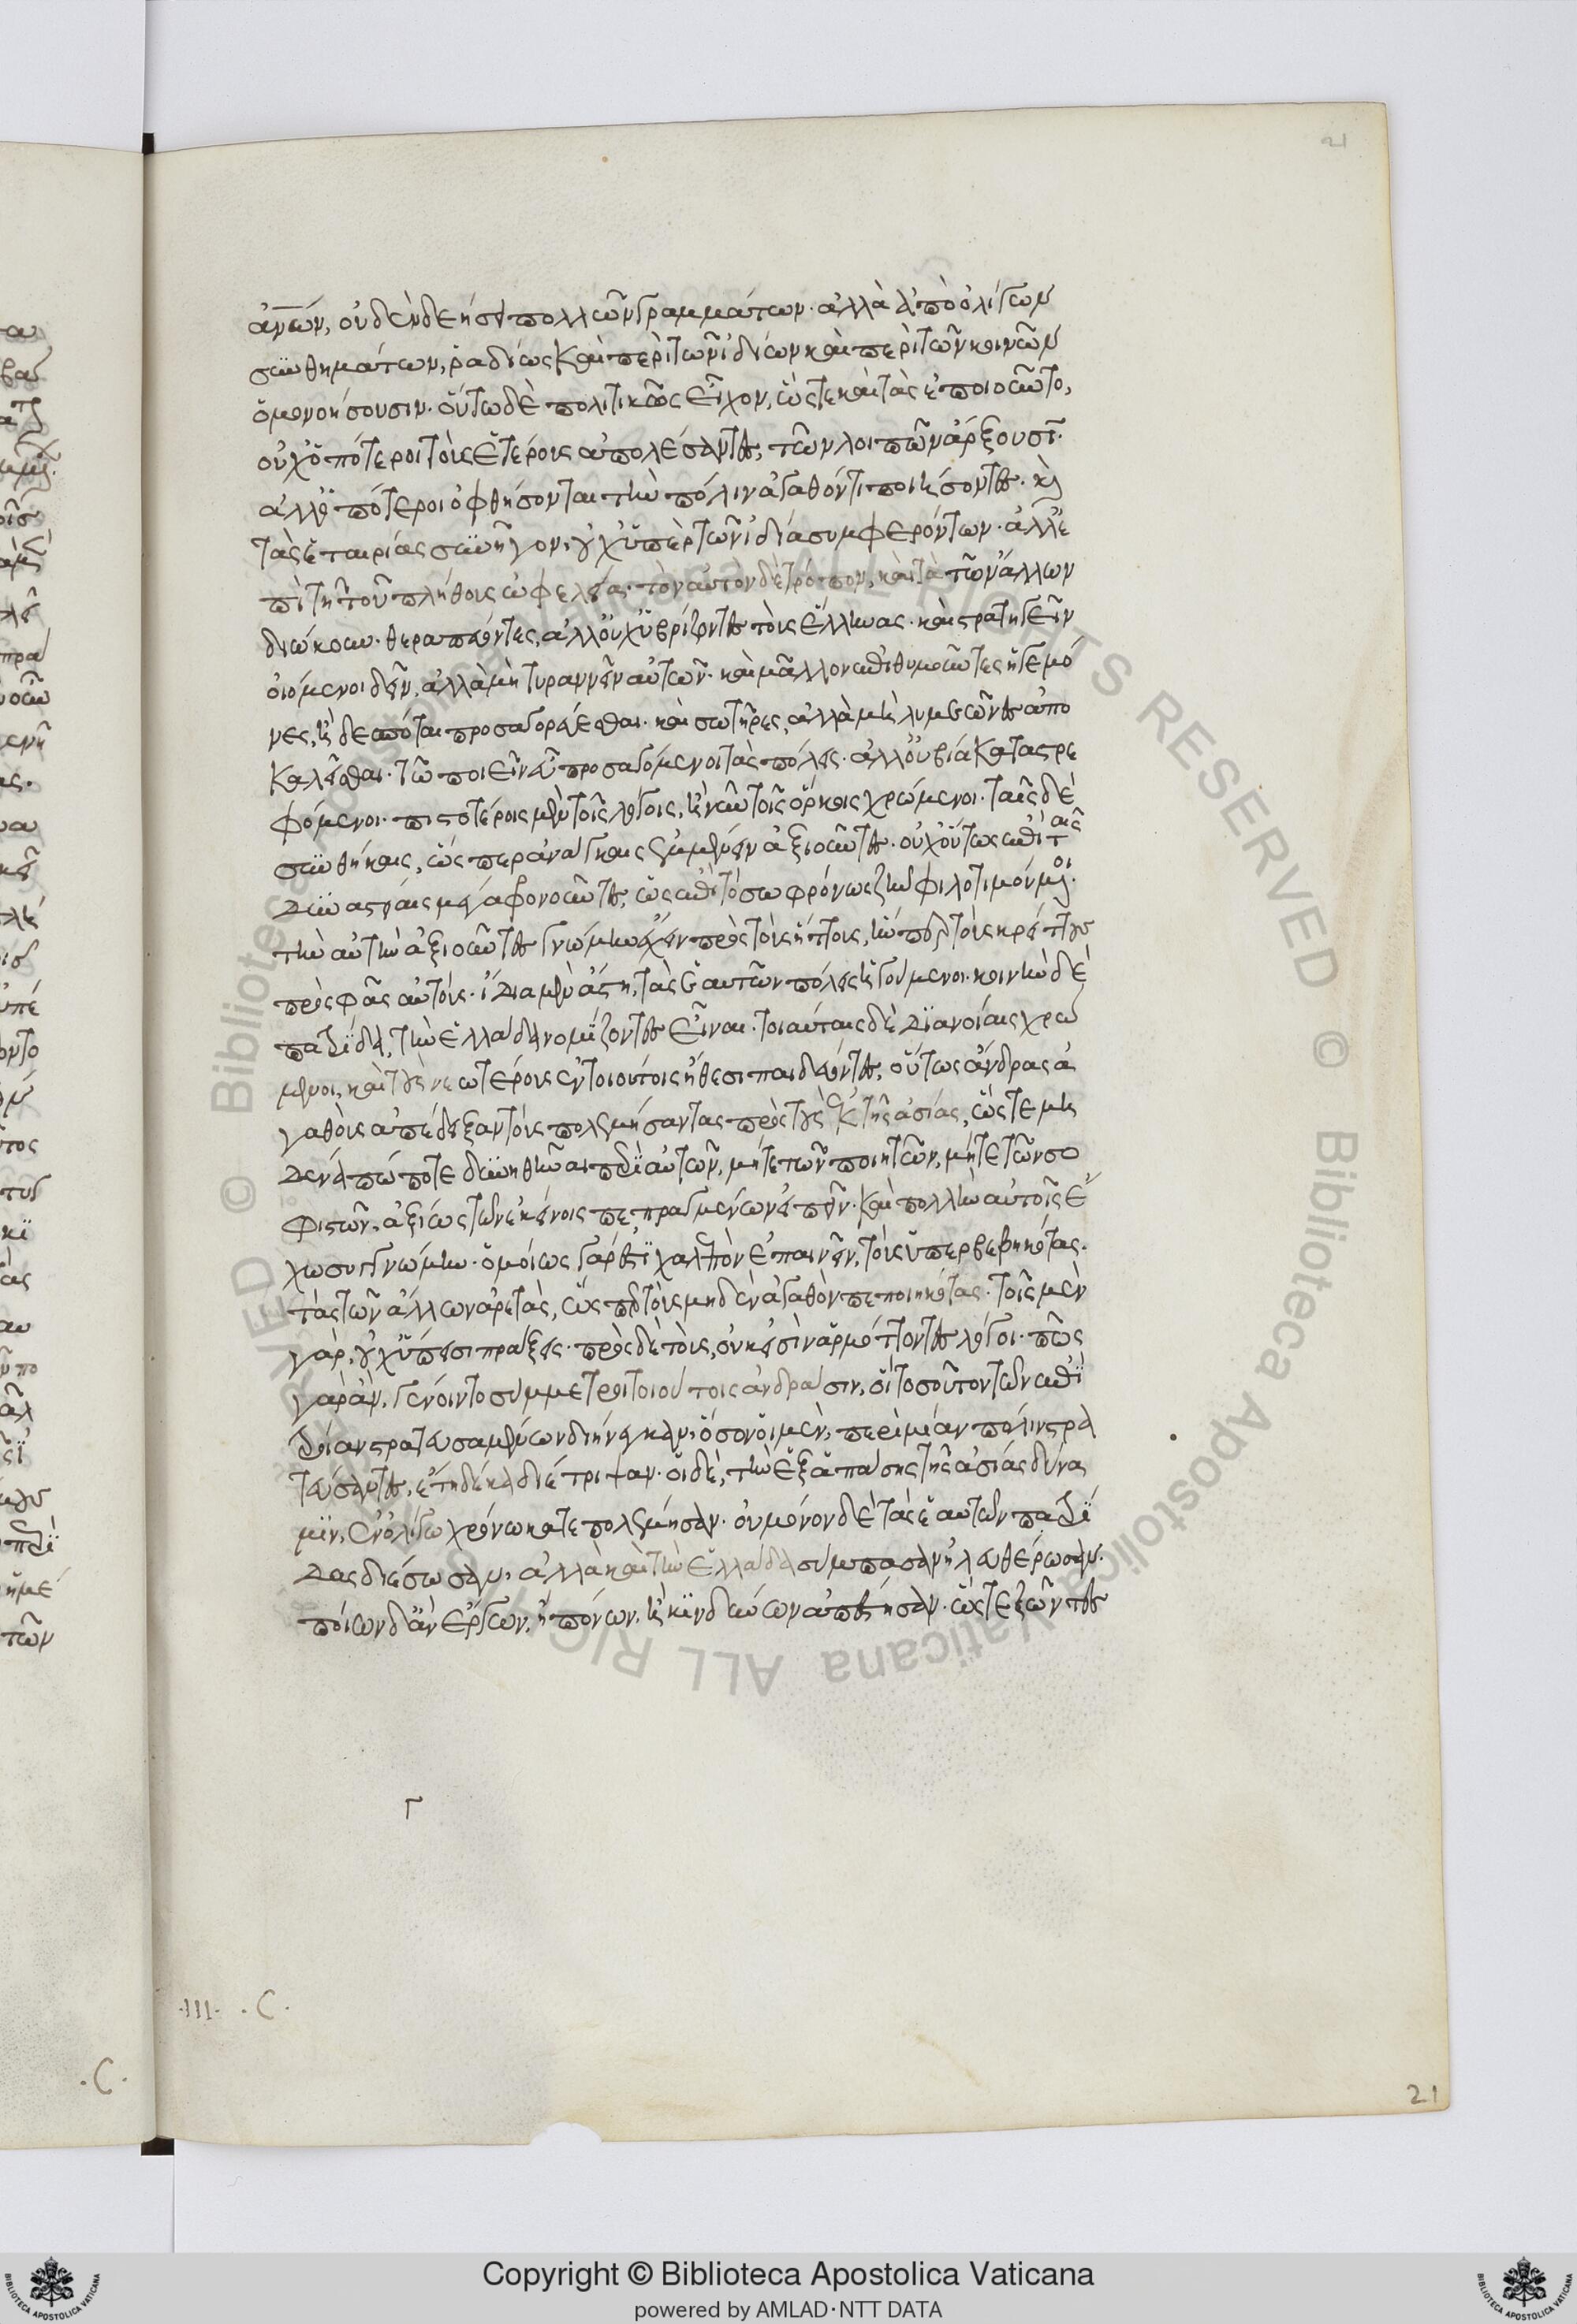 ἀνων, οὐδὲν δεήσει πολλῶν γραμμάτων· ἀλλὰ ἀπὸ ὀλίγων
συνθημάτων, ῥαδίως καὶ περὶ τῶν ἰδίων καὶ περὶ τῶν κοινῶν
ὁμονοήσουσιν· οὕτω δὲ πολιτικῶς εἶχον, ὥστε καὶ τὰς ἐποιοῦντο,
οὐχ ὁπότεροι τοὺς ἑτέρους ἀπολέσαντες, τῶν λοιπῶν ἄρξουσι·
ἀλλ' ὁπότεροι ὀφθήσονται τὴν πόλιν ἀγαθόν τι ποιήσοντες· καὶ
τὰς ἑταιρίας συνῆγον, οὐχ ὑπὲρ τῶν ἰδία συμφερόντων· ἀλλ' ἐ
πὶ τῆ τοῦ πλήθους ὠφελεία· τὸν αὐτὸν δὲ τρόπον, καὶ τὰ τῶν ἄλλων
διώκουν· θεραπεύοντες, ἀλλ' οὐχ ὑβρίζοντες τοὺς ἕλληνας· καὶ στρατηγεῖν
οἰόμενοι δεῖν, ἀλλὰ μὴ τυραννεῖν αὐτῶν· καὶ μᾶλλον ἐπιθυμοῦντες ἡγεμό
νες, ἢ δεσπόται προσαγορεύεσθαι· καὶ σωτῆρες, ἀλλὰ μὴ λυμεῶνες ἀπο
καλεῖσθαι· τῶ ποιεῖν εὖ προσαγόμενοι τὰς πόλεις· ἀλλ' οὐ βία καταστρε
φόμενοι· πιστοτέροις μὲν τοῖς λόγοις, ἢ νῦν τοῖς ὅρκοις χρώμενοι· ταῖς δὲ
συνθήκαις, ὥσπερ ἀνάγκαις ἐμμένειν ἀξιοῦντες· οὐχ οὕτως ἐπὶ ταῖς
δυναστείαις μέγα φρονοῦντες, ὡς ἐπὶ τὸ σωφρόνως ζῆν φιλοτιμούμενοι·
τὴν αὐτὴν ἀξιοῦντες γνώμην ἔχειν πρὸς τοὺς ἥττους, ἥνπερ τοὺς κρείττους
πρὸς σφᾶς αὐτούς· ἴδια μὲν ἄστη, τὰς ἑαυτῶν πόλεις ἡγούμενοι· κοινὴν δὲ
πατρίδα, τὴν ἑλλάδα νομίζοντες εἶναι· τοιαύταις δὲ διανοίαις χρώ
μενοι, καὶ τοὺς νεωτέρους ἐν τοιούτοις ἤθεσι παιδεύοντες, οὕτως ἄνδρας ἀ
γαθοὺς ἀπέδειξαν τοὺς πολεμήσαντας πρὸς τοὺς ἐκ τῆς ἀσίας, ὥστε μη
δένα πώποτε δυνηθῆναι περὶ αὐτῶν, μήτε τῶν ποιητῶν, μήτε τῶν σο
φιστῶν, ἀξίως τῶν ἐκείνοις πεπραγμένων εἰπεῖν· καὶ πολλὴν αὐτοῖς ἔ
χω συγγνώμην· ὁμοίως γάρ ἐστι χαλεπὸν ἐπαινεῖν, τοὺς ὑπερβεβηκότας
τὰς τῶν ἄλλων ἀρετάς, ὥσπερ τοὺς μηδὲν ἀγαθὸν πεποιηκότας· τοῖς μὲν
γὰρ, οὐχ ὕπεισι πράξεις· πρὸς δὲ τοὺς, οὐκ εἰσὶν ἁρμόττοντες λόγοι· πῶς
γὰρ ἂν, γένοιντο σύμμετροι τοιούτοις ἀνδράσιν, οἳ τοσοῦτον τῶν ἐπὶ
τροίαν στρατευσαμένων διήνεγκαν, ὅσον οἱ μὲν, περὶ μίαν πόλιν στρα
τεύσαντες, ἔτη δέκα διέτριψαν· οἱ δὲ, τὴν ἐξ ἁπάσης τῆς ἀσίας δύνα
μιν, ἐν ὀλίγω χρόνω κατεπολέμησαν· οὐ μόνον δὲ τὰς ἑαυτῶν πατρί
δας διέσωσαν, ἀλλὰ καὶ τὴν ἑλλάδα σύμπασαν ἠλευθέρωσαν·
ποίων δ' ἂν ἔργων, ἢ πόνων, ἢ κινδύνων ἀπέστησαν· ὥστε ζῶντες
Γ
·III· ·C·
·C·
21
21
Copyright © Biblioteca Apostolica Vaticana
powered by AMLAD·NTT DATA